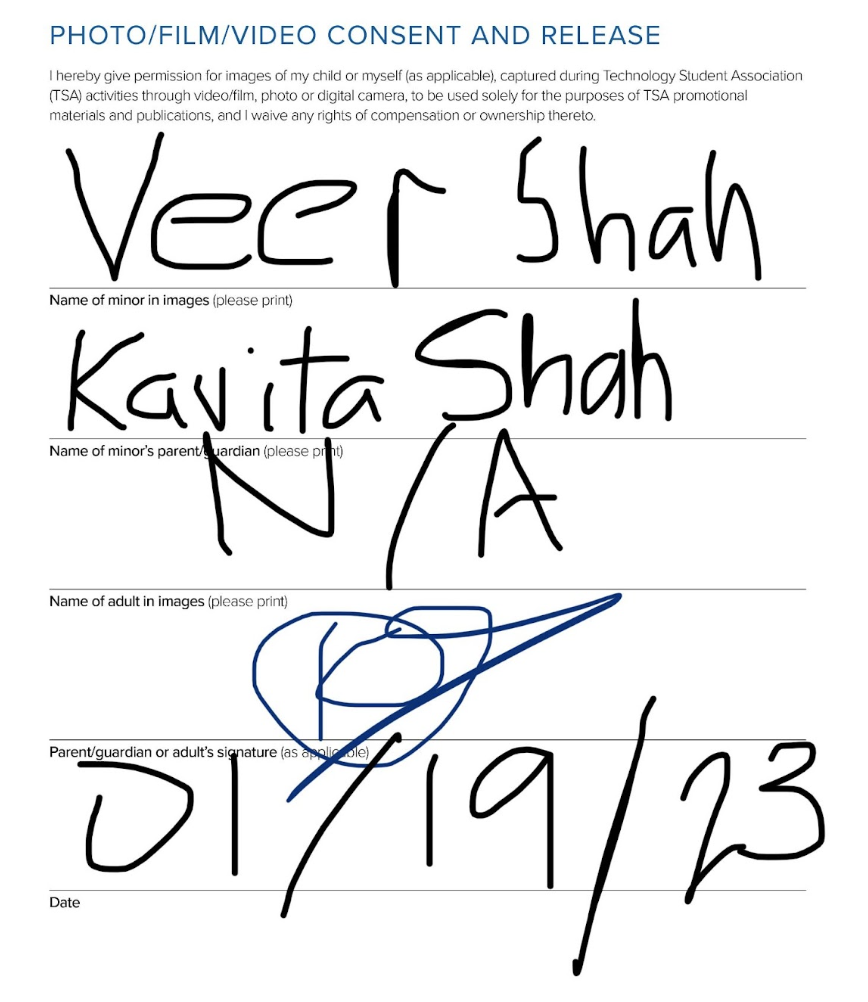 PHOTO/FILM/VIDEO CONSENT AND RELEASE
I hereby give permission for images of my child or myself (as applicable), captured during Technology Student Association
(TSA) activities through video/film, photo or digital camera, to be used solely for the purposes of TSA promotional
materials and publications, and I waive any rights of compensation or ownership thereto.
Veer Shah
Name of minor in images (please print)
Kavita Shah
Name of minor's parent/guardian (please print)
N/A
Name of adult in images (please print)
Parent/guardian or adult's signature (as applicable)
01/19/23
Date